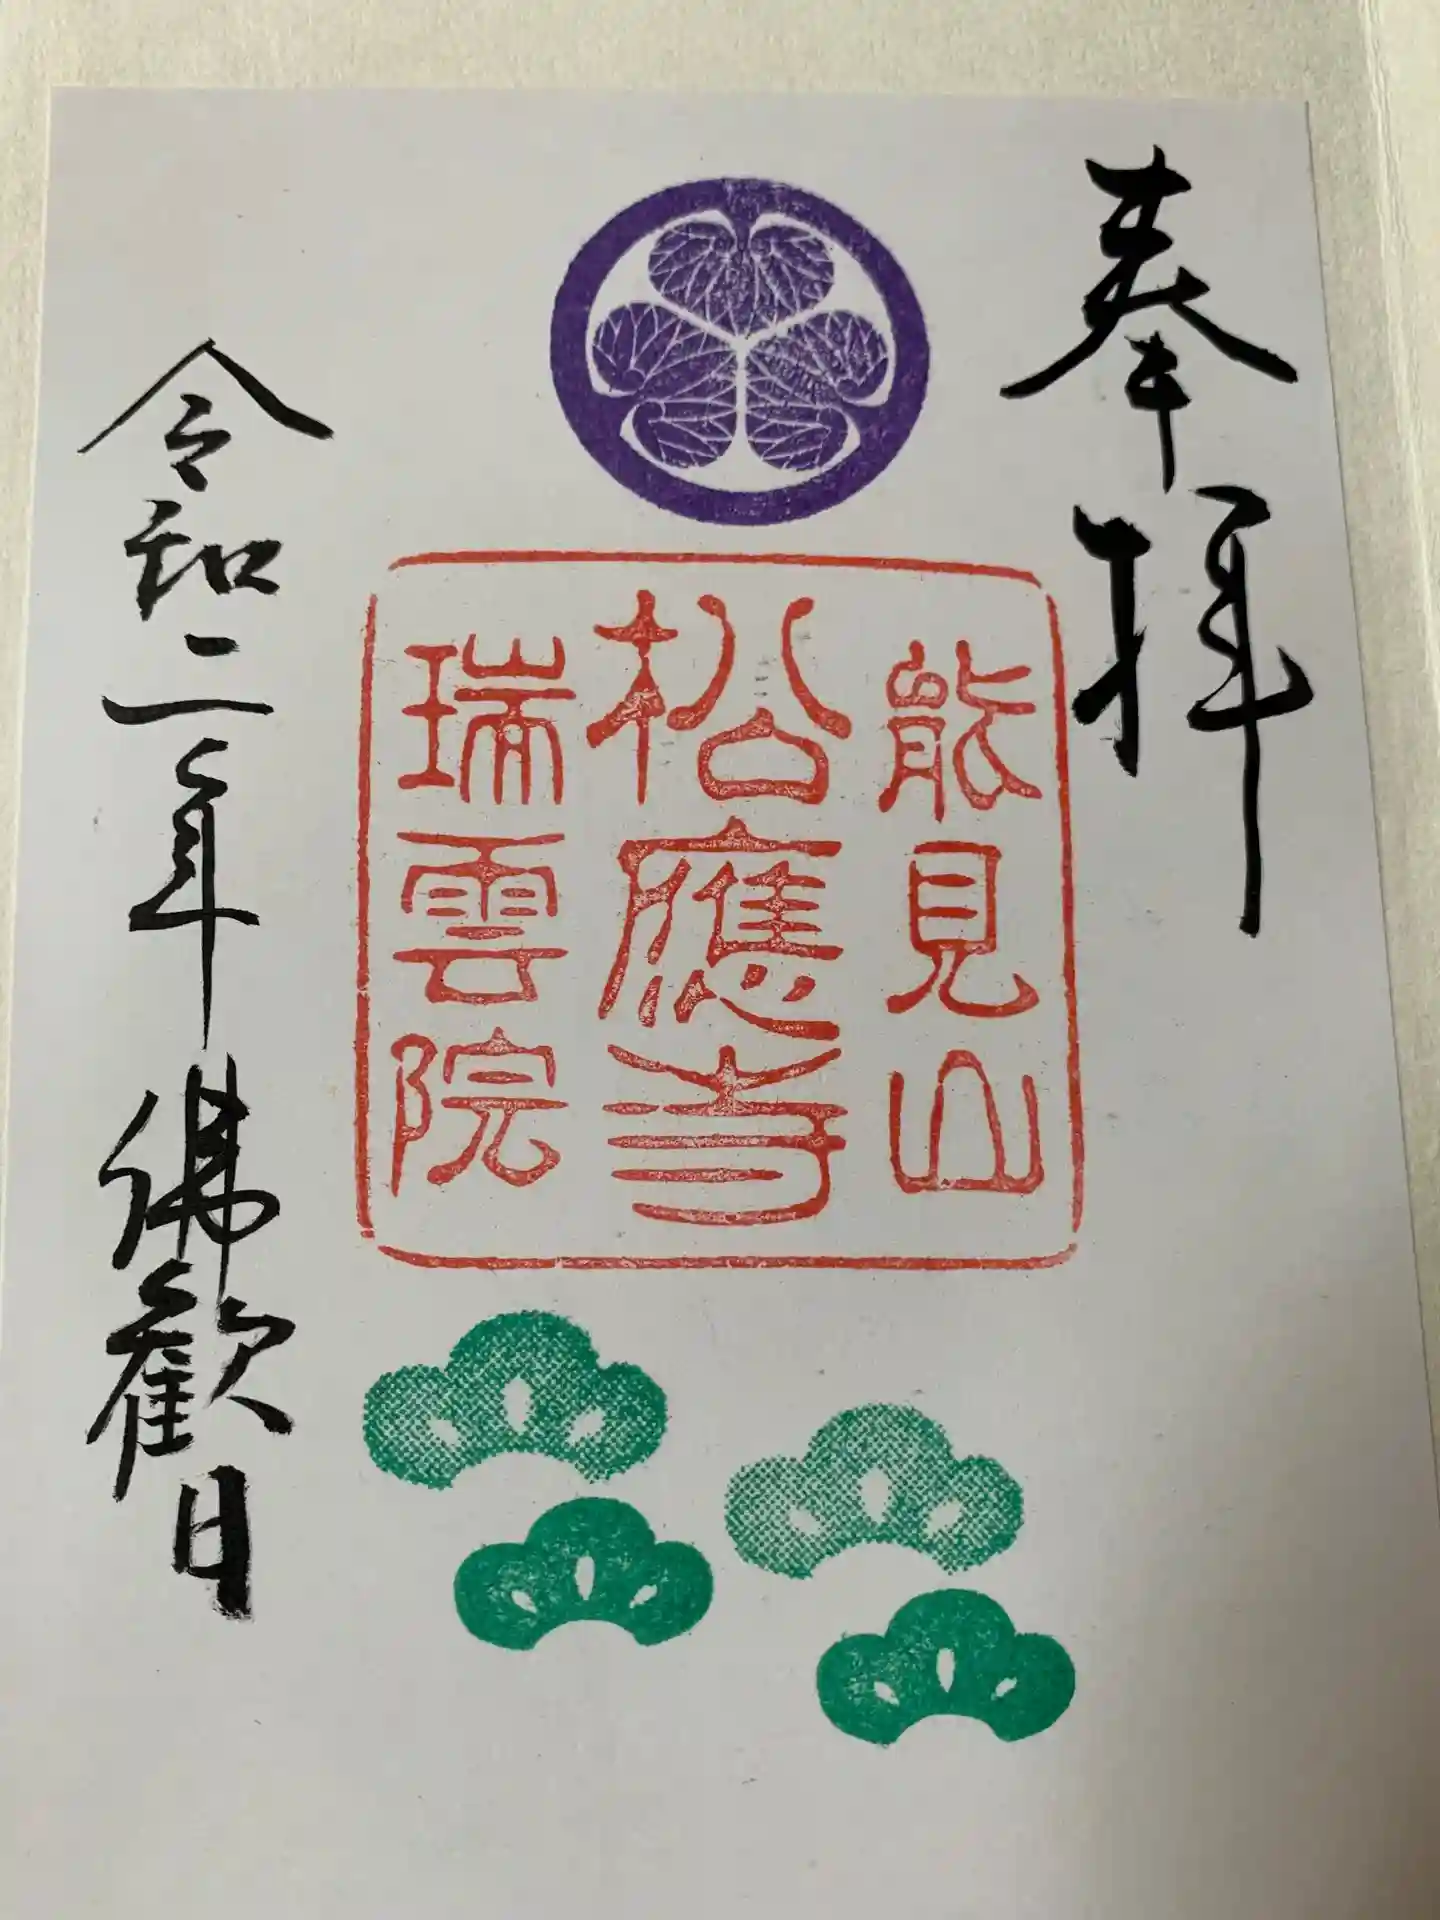 奉拝
能見山
松應寺
瑞雲院
令和二年佛歓日